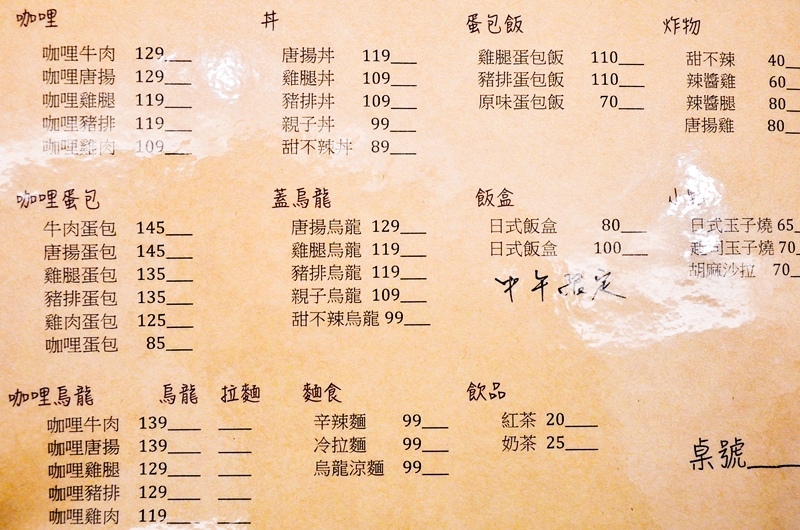 咖哩
咖哩牛肉 129___
咖哩唐揚 129___
咖哩雞腿 119___
咖哩豬排 119___
咖哩雞肉 109___
丼
唐揚丼 119___
雞腿丼 109___
豬排丼 109___
親子丼 99___
甜不辣丼 89___
蛋包飯
雞腿蛋包飯 110___
豬排蛋包飯 110___
原味蛋包飯 70___
炸物
甜不辣 40___
辣醬雞 60___
辣醬腿 80___
唐揚雞 80___
咖哩蛋包
牛肉蛋包 145___
唐揚蛋包 145___
雞腿蛋包 135___
豬排蛋包 135___
雞肉蛋包 125___
咖哩蛋包 85___
蓋烏龍
唐揚烏龍 129___
雞腿烏龍 119___
豬排烏龍 119___
親子烏龍 109___
甜不辣烏龍 99___
飯盒
日式飯盒 80___
日式飯盒 100___
中午限定
小
日式玉子燒 65___
起司玉子燒 70___
胡麻沙拉 70___
咖哩烏龍 烏龍 拉麵
咖哩牛肉 139___ ___
咖哩唐揚 139___ ___
咖哩雞腿 129___ ___
咖哩豬排 129___ ___
咖哩雞肉 119___ ___
麵食
辛辣麵 99___
冷拉麵 99___
烏龍涼麵 99___
飲品
紅茶 20___
奶茶 25___
桌號___